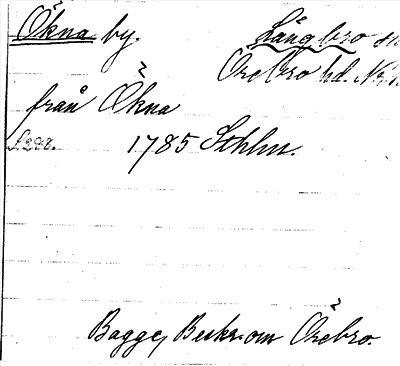 Ökna by. Långbro sn
Örebro hd. Nke.
från Ökna
f. 228. 1785 Sthlm.
Bagge, Beskr. om Örebro.